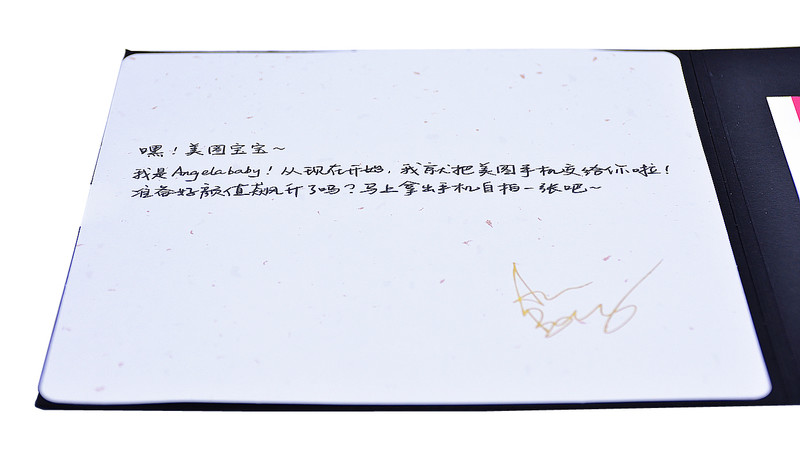 嘿！美图宝宝~
我是Angelababy！从现在开始，我就把美图手机交给你啦！
准备好颜值飙升了吗？马上拿出手机自拍一张吧~